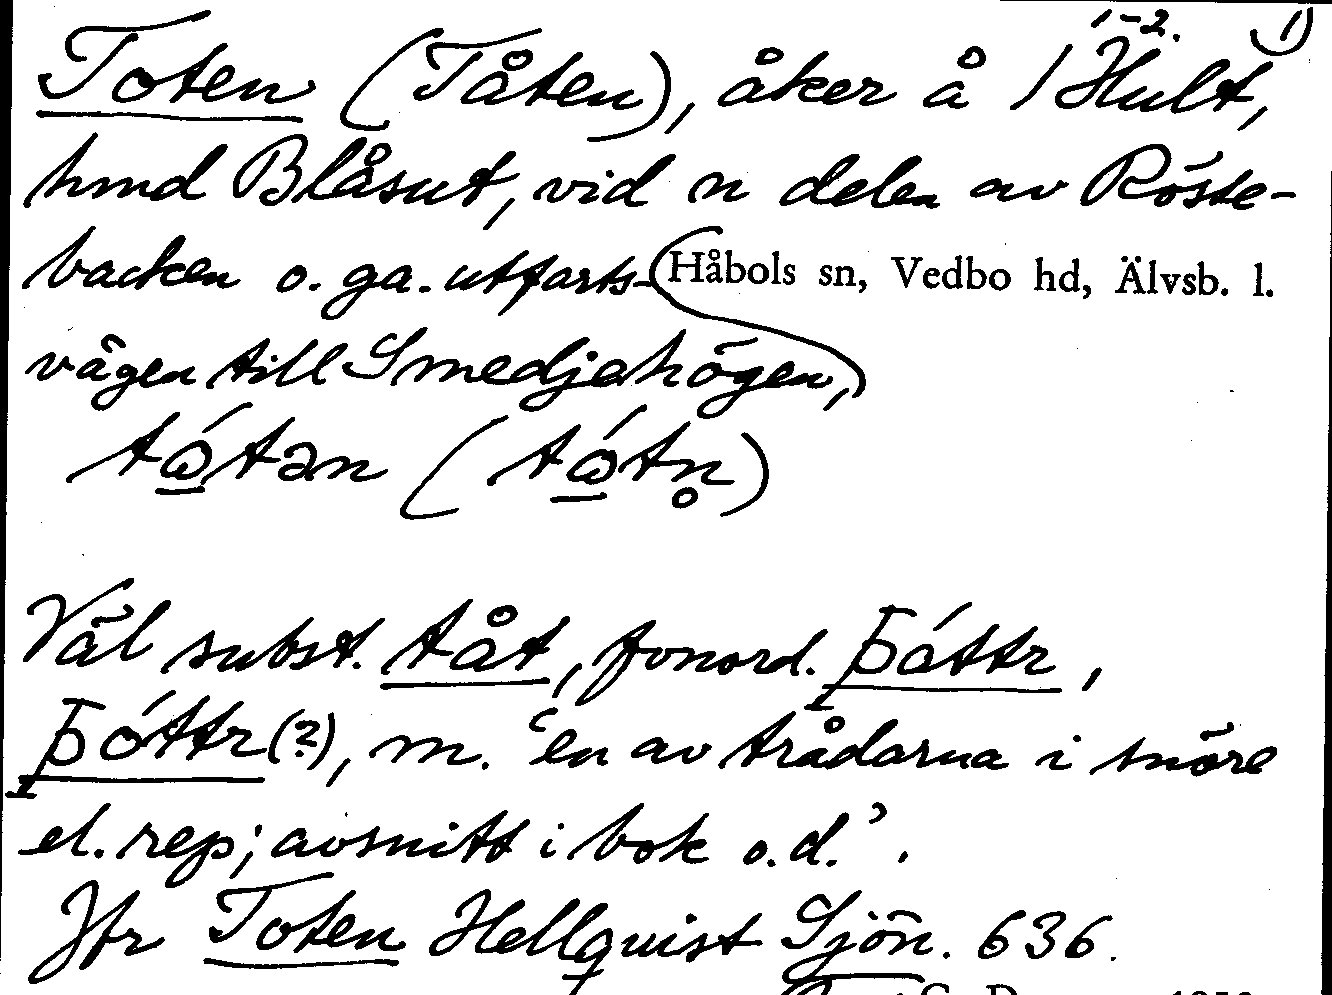 1-2. 1)
Toten (Tåten), åker å 1 Hult,
hmd Blåsut, vid n delen av Röste-
backen o. ga. utfarts- Håbols sn, Vedbo hd, Älvsb. l.
vägen till Smedjehögen,
tώtən (tώtn̥)
Väl subst. tåt, fonord. þáttr,
þóttr(?), m. 'en av trådarna i snöre
el. rep; avsnitt i bok o.d.'.
Jfr Toten Hellquist Sjön. 636.